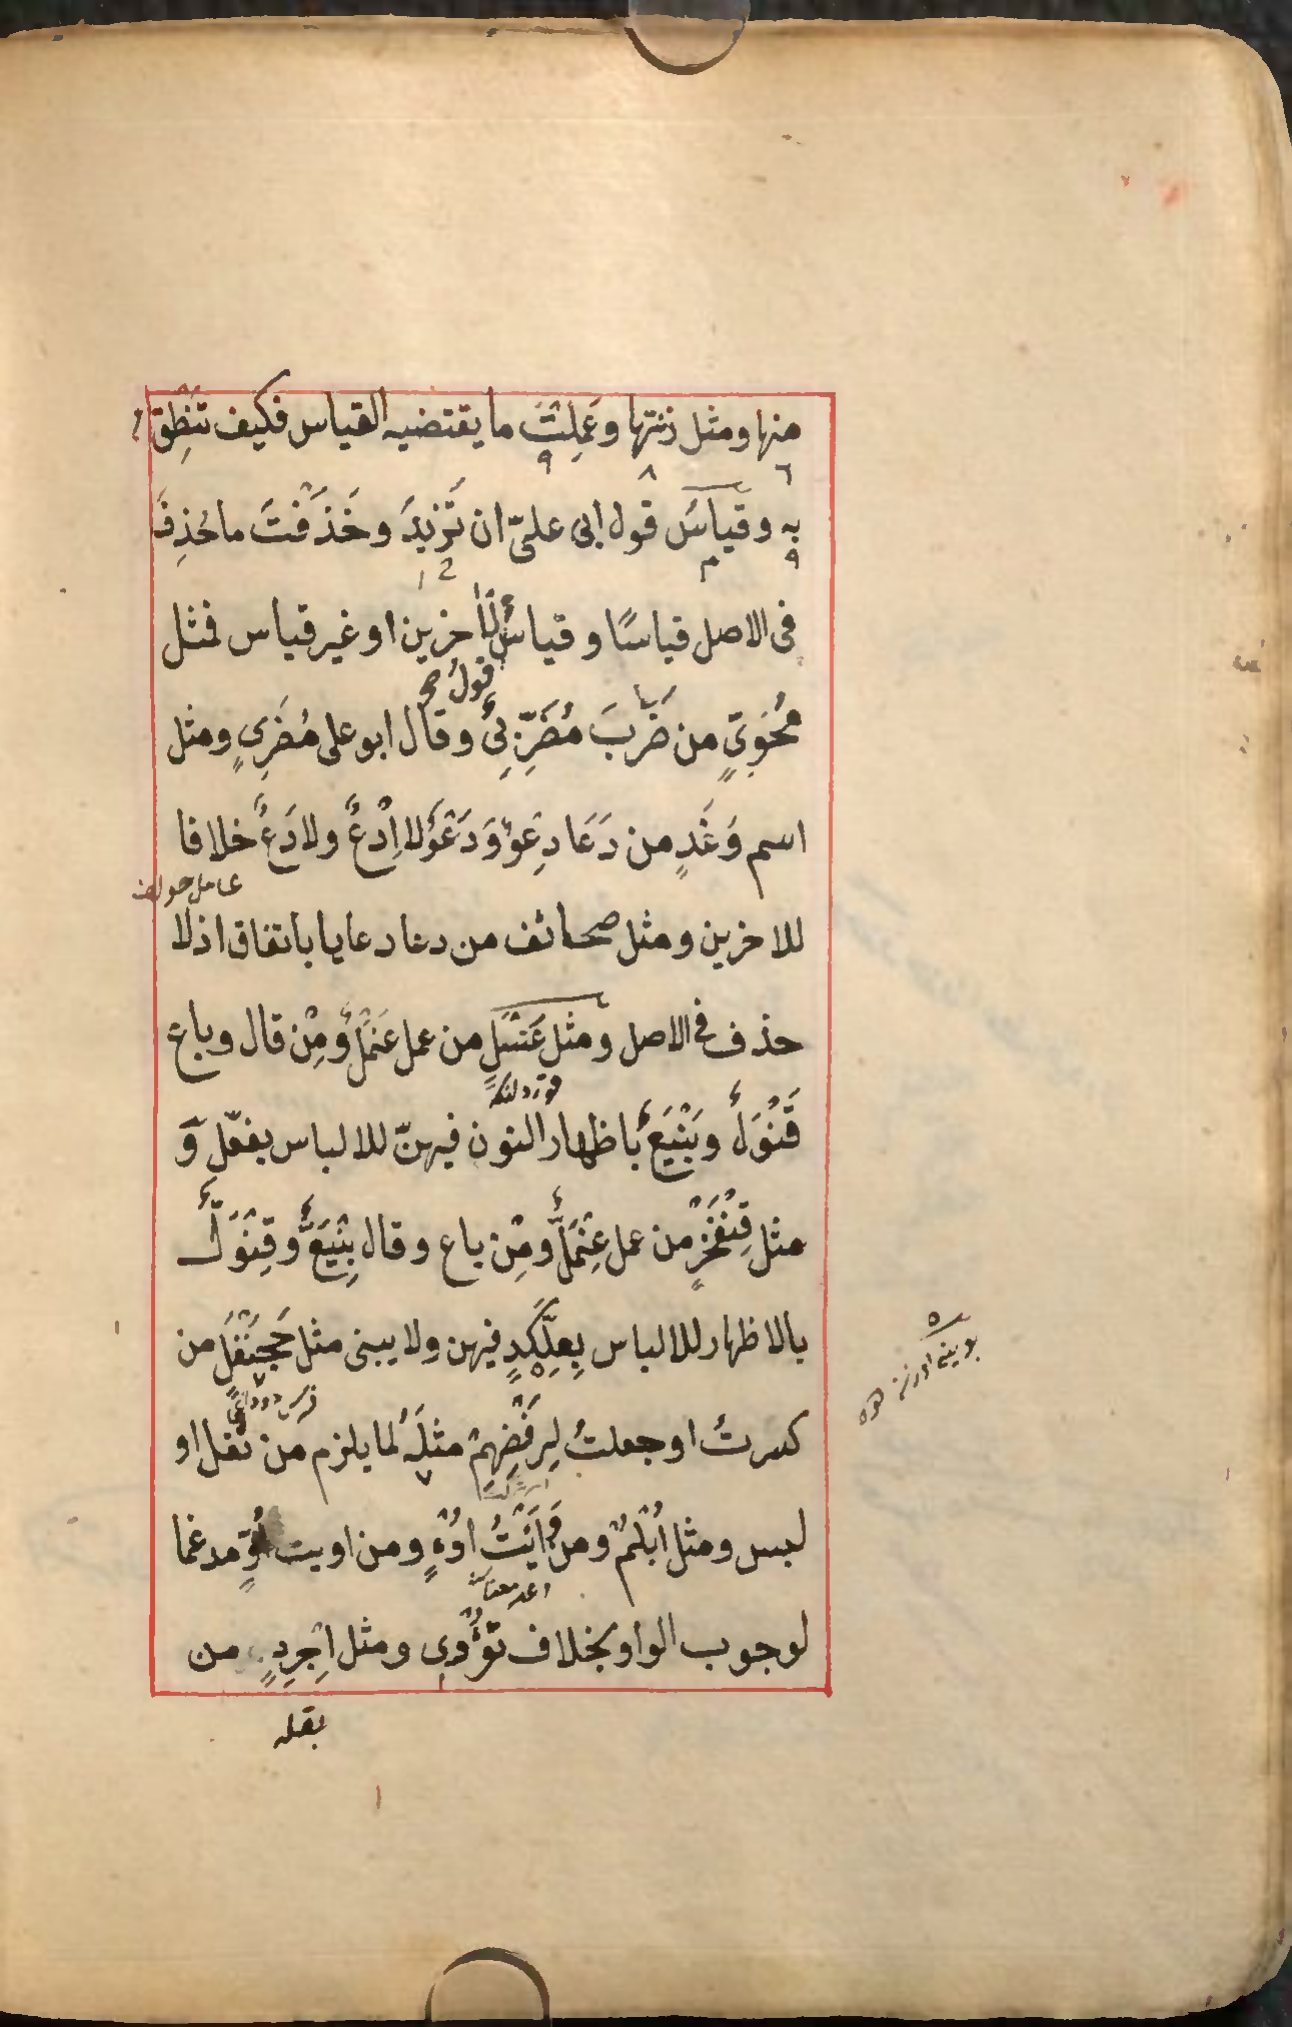 منها ومثل زنتها وعَمِلتَ ما يقتضيه القياس فكيف تَنطِق
به وقياسُ قول ابى علىّ ان تَزيدَ وحَذَفتَ ما حُذِفَ
فى الاصل قياسًا وقياسُ الآخرين او غير قياس فمثل
قولُ صح
مُحَوِىٍّ من ضَرَبَ مُضَرِّبِىٌّ وقال ابو على مُضَرِىٍ ومثل
اسم وَغَدٍ من دَعَا دِعْوٌ وَدَعْوٌ لا اِدْعٌ ولا دَعٌ خلافا
للاخرين ومثل صحائف من دعا دعايا باتفاق اذ لا
حذف فى الاصل ومثل عَنْسَلٍ من عمل عَنْمَلٌ ومِن قال وباع
قَنْوَلٌ وبَنْيَعٌ باظهار النون فيهنّ للالباس بفعّل و
مثل قِنْفَخْرٍ من عمل عِنْمَلٌّ ومِن باع وقال بِنْيَعٌّ وقِنْوَلٌّ
بالاظهار للالباس بِعِلَّكْدٍ فيهن ولا يبنى مثل جَحَنْفَلٍ من
كسرتُ او جعلتُ لِرَفْضِهِمْ مثلَهُ لما يلزم من ثقل او
لبس ومثل اُبْلُمٍ ومن وَأَيْتُ اُوْءٍ ومن اويت اُوٍّ مدغما
لوجوب الواو بخلاف تُؤْوِى ومثل اِجْرِدٍ من